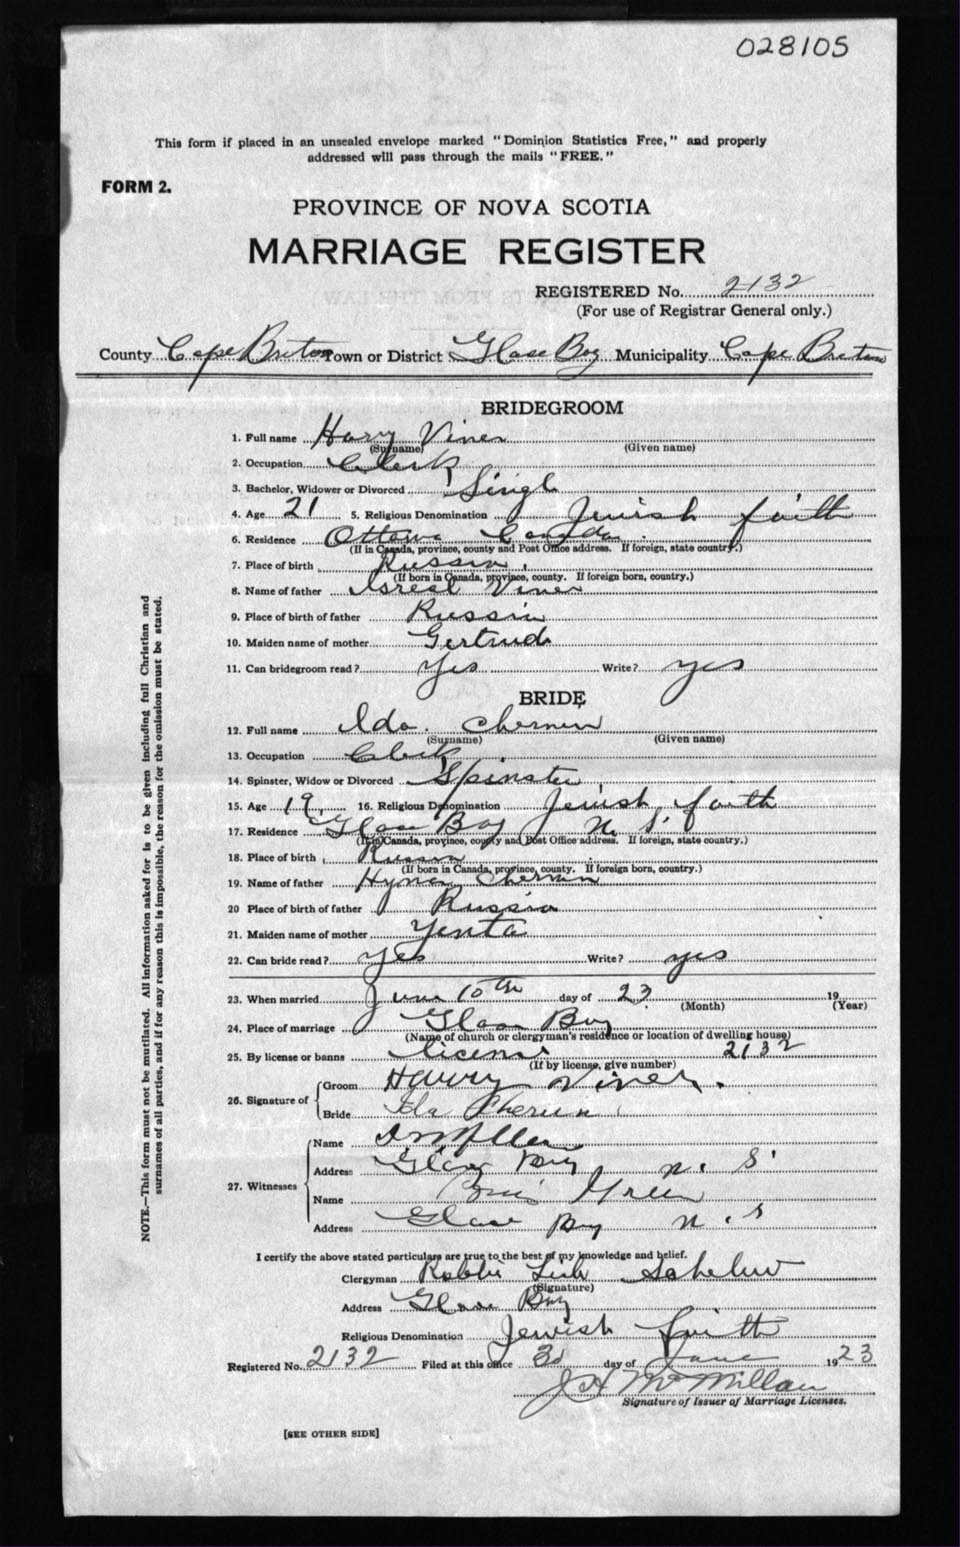 028105
This form if placed in an unsealed envelope marked "Dominion Statistics Free," and properly
addressed will pass through the mails "FREE."
FORM 2.
PROVINCE OF NOVA SCOTIA
MARRIAGE REGISTER
REGISTERED No. 2132
(For use of Registrar General only.)
County Cape Breton Town or District Glace Bay Municipality Cape Breton
BRIDEGROOM
1. Full name Harry Viner
(Surname) (Given name)
2. Occupation Clerk
3. Bachelor, Widower or Divorced Single
4. Age 21 5. Religious Denomination Jewish faith
6. Residence Ottawa Canada
(If in Canada, province, county and Post Office address. If foreign, state country.)
7. Place of birth Russia
(If born in Canada, province, county. If foreign born, country.)
8. Name of father Isreal Viner
9. Place of birth of father Russia
10. Maiden name of mother Gertrude
11. Can bridegroom read? Yes Write? yes
BRIDE
12. Full name Ida Chernin
(Surname) (Given name)
13. Occupation Clerk
14. Spinster, Widow or Divorced Spinster
15. Age 19 16. Religious Denomination Jewish faith
17. Residence Glace Bay N. S.
(If in Canada, province, county and Post Office address. If foreign, state country.)
18. Place of birth Russia
(If born in Canada, province, county. If foreign born, country.)
19. Name of father Hyman Chernin
20 Place of birth of father Russia
21. Maiden name of mother Yenta
22. Can bride read? Yes Write? yes
23. When married June 10th day of 23 19
(Month) (Year)
24. Place of marriage Glace Bay
(Name of church or clergyman's residence or location of dwelling house)
25. By license or banns license 2132
(If by license, give number)
26. Signature of
Groom Harry Viner.
Bride Ida Chernin
27. Witnesses
Name
Address Glace Bay N. S.
Name Green
Address Glace Bay N. S
I certify the above stated particulars are true to the best of my knowledge and belief.
Clergyman Rabbi
(Signature)
Address Glace Bay
Religious Denomination Jewish faith
Registered No. 2132 Filed at this office 3d day of June 1923
J A McMillan
Signature of Issuer of Marriage Licenses.
[SEE OTHER SIDE]
NOTE.—This form must not be mutilated. All information asked for is to be given including full Christian and
surnames of all parties, and if for any reason this is impossible, the reason for the omission must be stated.